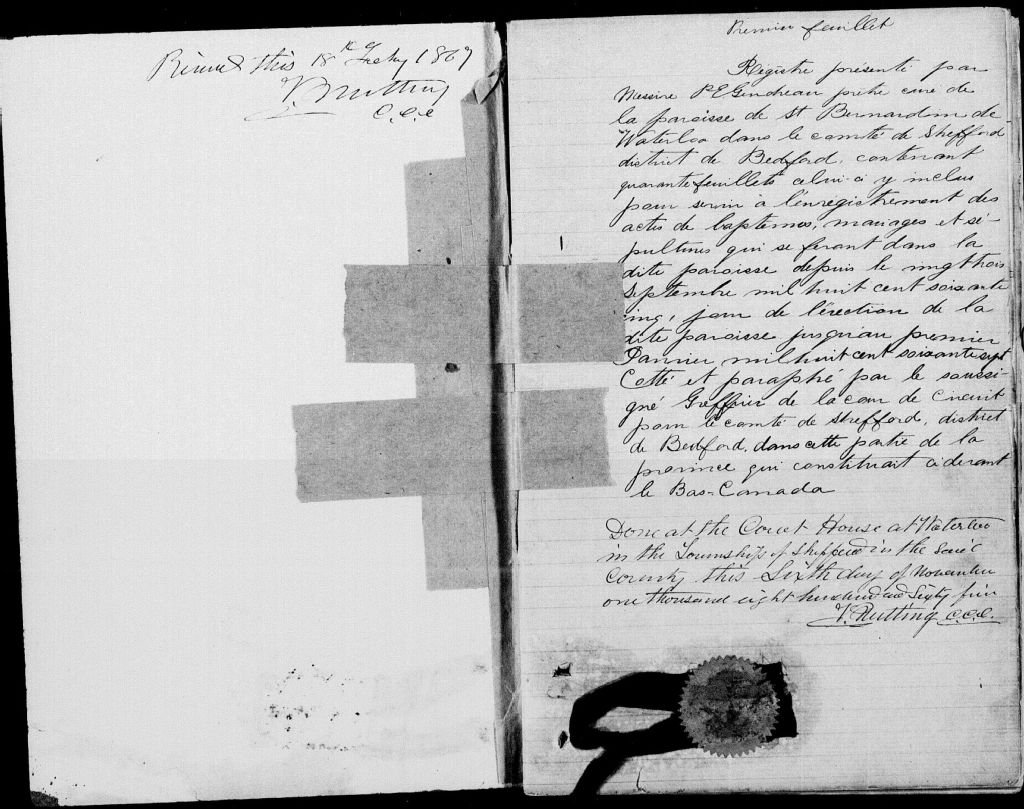 this 18th 1867
Nutting
C.C.C
Premier feuillet
Registre présenté par
Messire P E Gendreau prêtre curé de
la paroisse de St Bernardin de
Waterloo dans le comté de Shefford
district de Bedford, contenant
quarante feuillets celui-ci y inclus
pour servir à l'enregistrement des
actes de baptêmes, mariages et sé-
pultures qui se feront dans la
dite paroisse depuis le vingt trois
Septembre mil huit cent soixante
cinq, jour de l'érection de la
dite paroisse jusqu'au premier
Janvier mil huit cent soixante sept
Cotté et paraphé par le soussi-
gné Greffier de la cour de Circuit
pour le comté de Shefford, district
de Bedford, dans cette partie de la
province qui constituait ci devant
le Bas-Canada
Done at the Court House at Waterloo
in the Township of Shefford in the said
County this Sixth day of November
one thousand eight hundred and Sixty five
Nutting C.C.C.